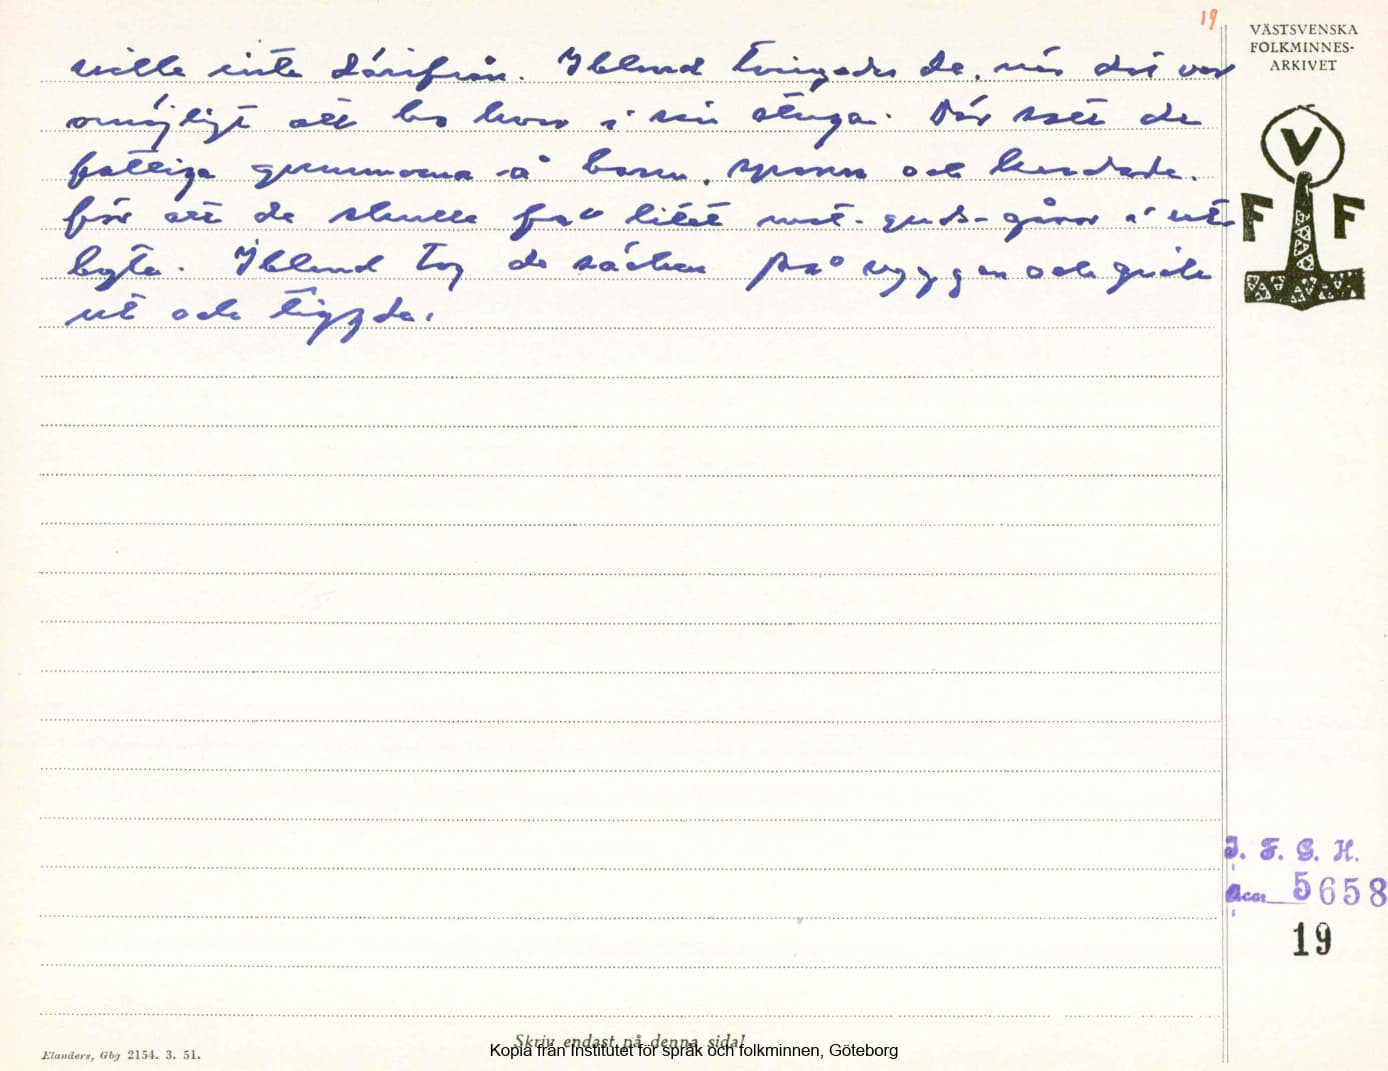 19
VÄSTSVENSKA
FOLKMINNES-
ARKIVET
ville inte därifrån. Ibland tvingades de, när det var
omöjligt att bo kvar i sin stuga. Där satt de
fattiga gummorna å barn, spann och kardade.
för att de skulle få litet mat- guds- gåvor i ut-
byte. Ibland tog de säcken på ryggen och gick
ut och tiggde.
V
F F
I. F. G. H.
Acc. 5658
19
Skriv endast på denna sida!
Elanders, Gbg 2154. 3. 51.
Kopia från Institutet för språk och folkminnen, Göteborg